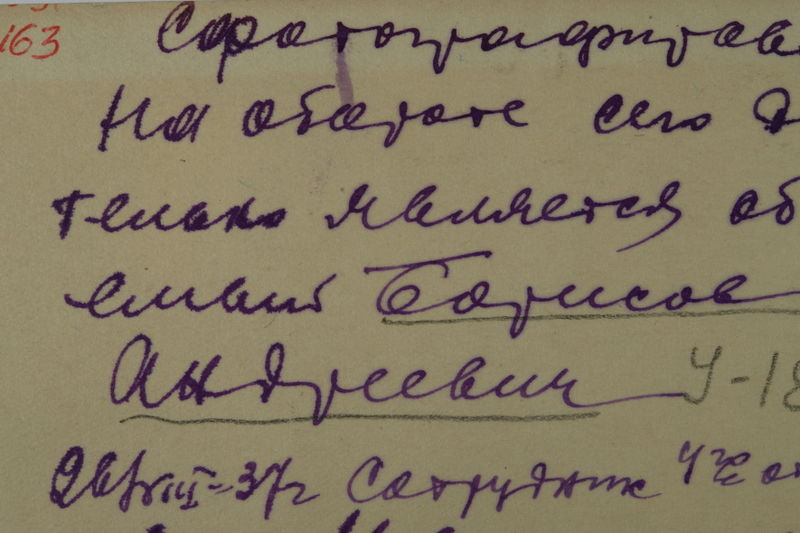 163
Сфотографирова
На обороте сего д
тельно является об
емый Борисов
Андреевич У-18
26/VIII-37г Сотрудник 4го от